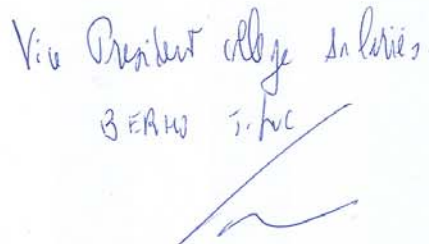 Vice Président collège Salariés
BERHO J. Luc